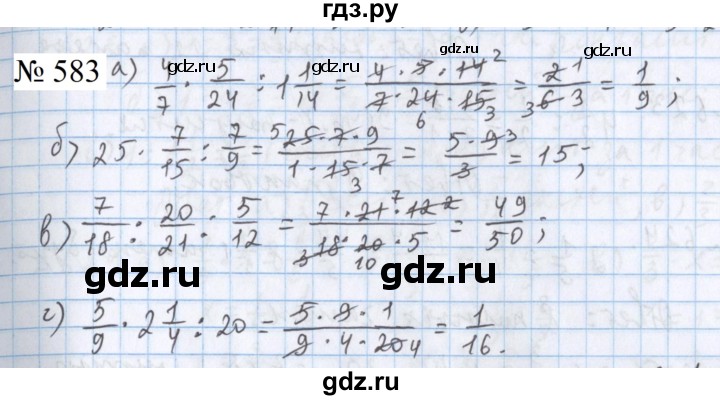 гдз.ру
№ 583 а) 4/7 · 5/24 : 1 1/14 = 4 · 5 · 14 2 / 7 · 24 6 · 15 3 = 2 1 / 3 6 · 3 = 1/9 ;
б) 25 · 7/15 : 7/9 = 5 25 · 7 · 9 / 1 · 15 3 · 7 = 5 · 9 3 / 3 = 15;
в) 7/18 : 20/21 : 5/12 = 7 · 21 7 · 12 2 / 3 18 · 20 10 · 5 = 49/50 ;
gdz.ru gdz.ru
г) 5/9 · 2 1/4 : 20 = 5 · 9 · 1 / 9 · 4 · 20 4 = 1/16 .
gdz.ru